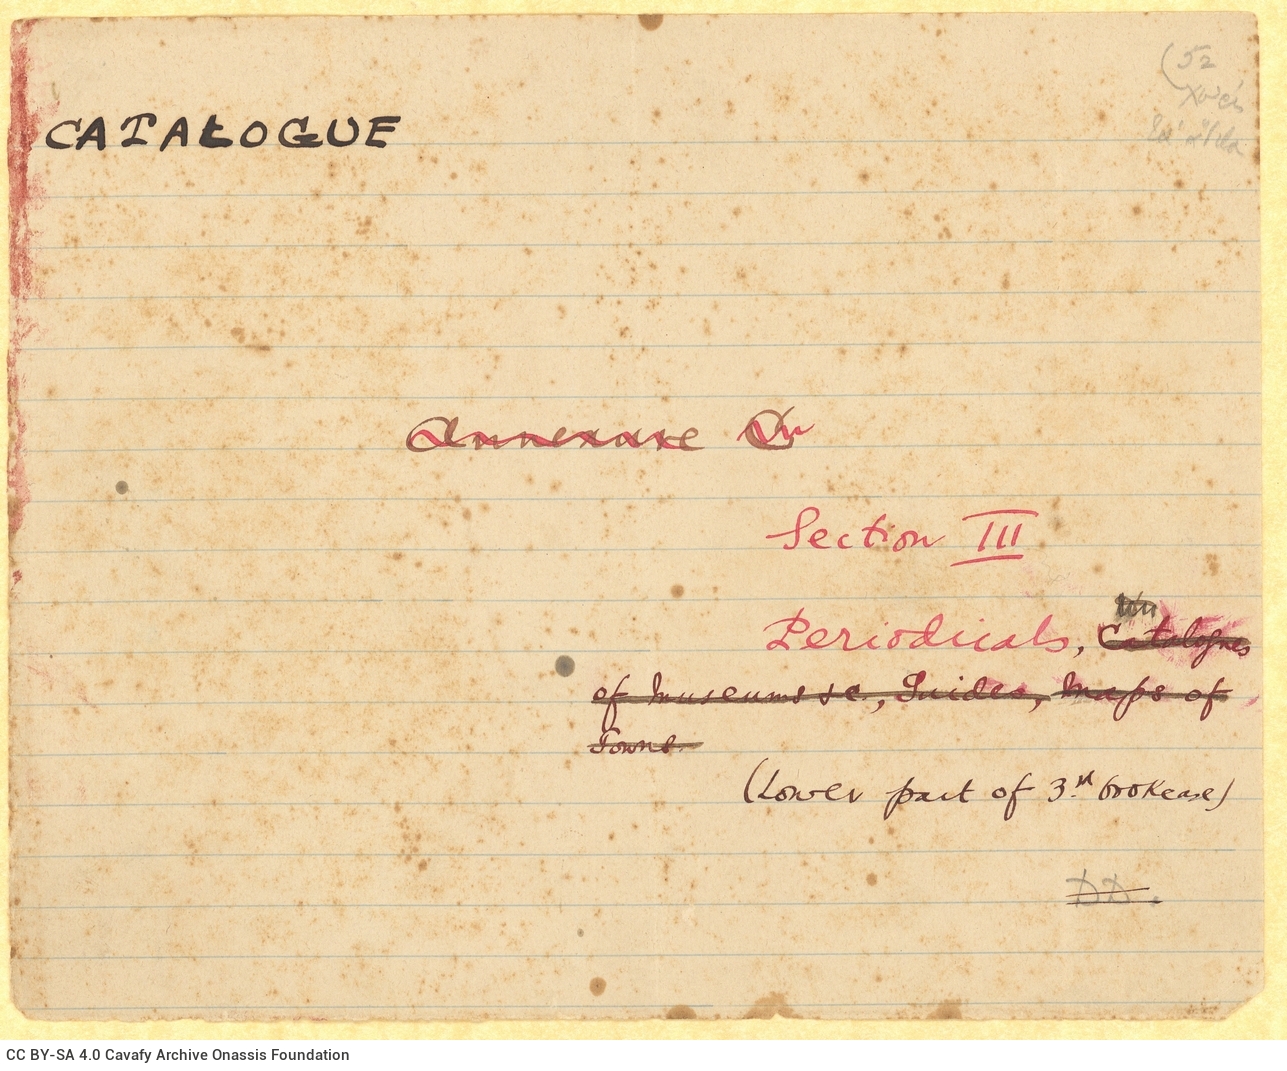 CATALOGUE
(52
Annexure
Section III
Periodicals, Catalogues
of Museums &c., Guides, Maps of
Towns.
(Lower part of 3rd bookcase)
DD.
CC BY-SA 4.0 Cavafy Archive Onassis Foundation